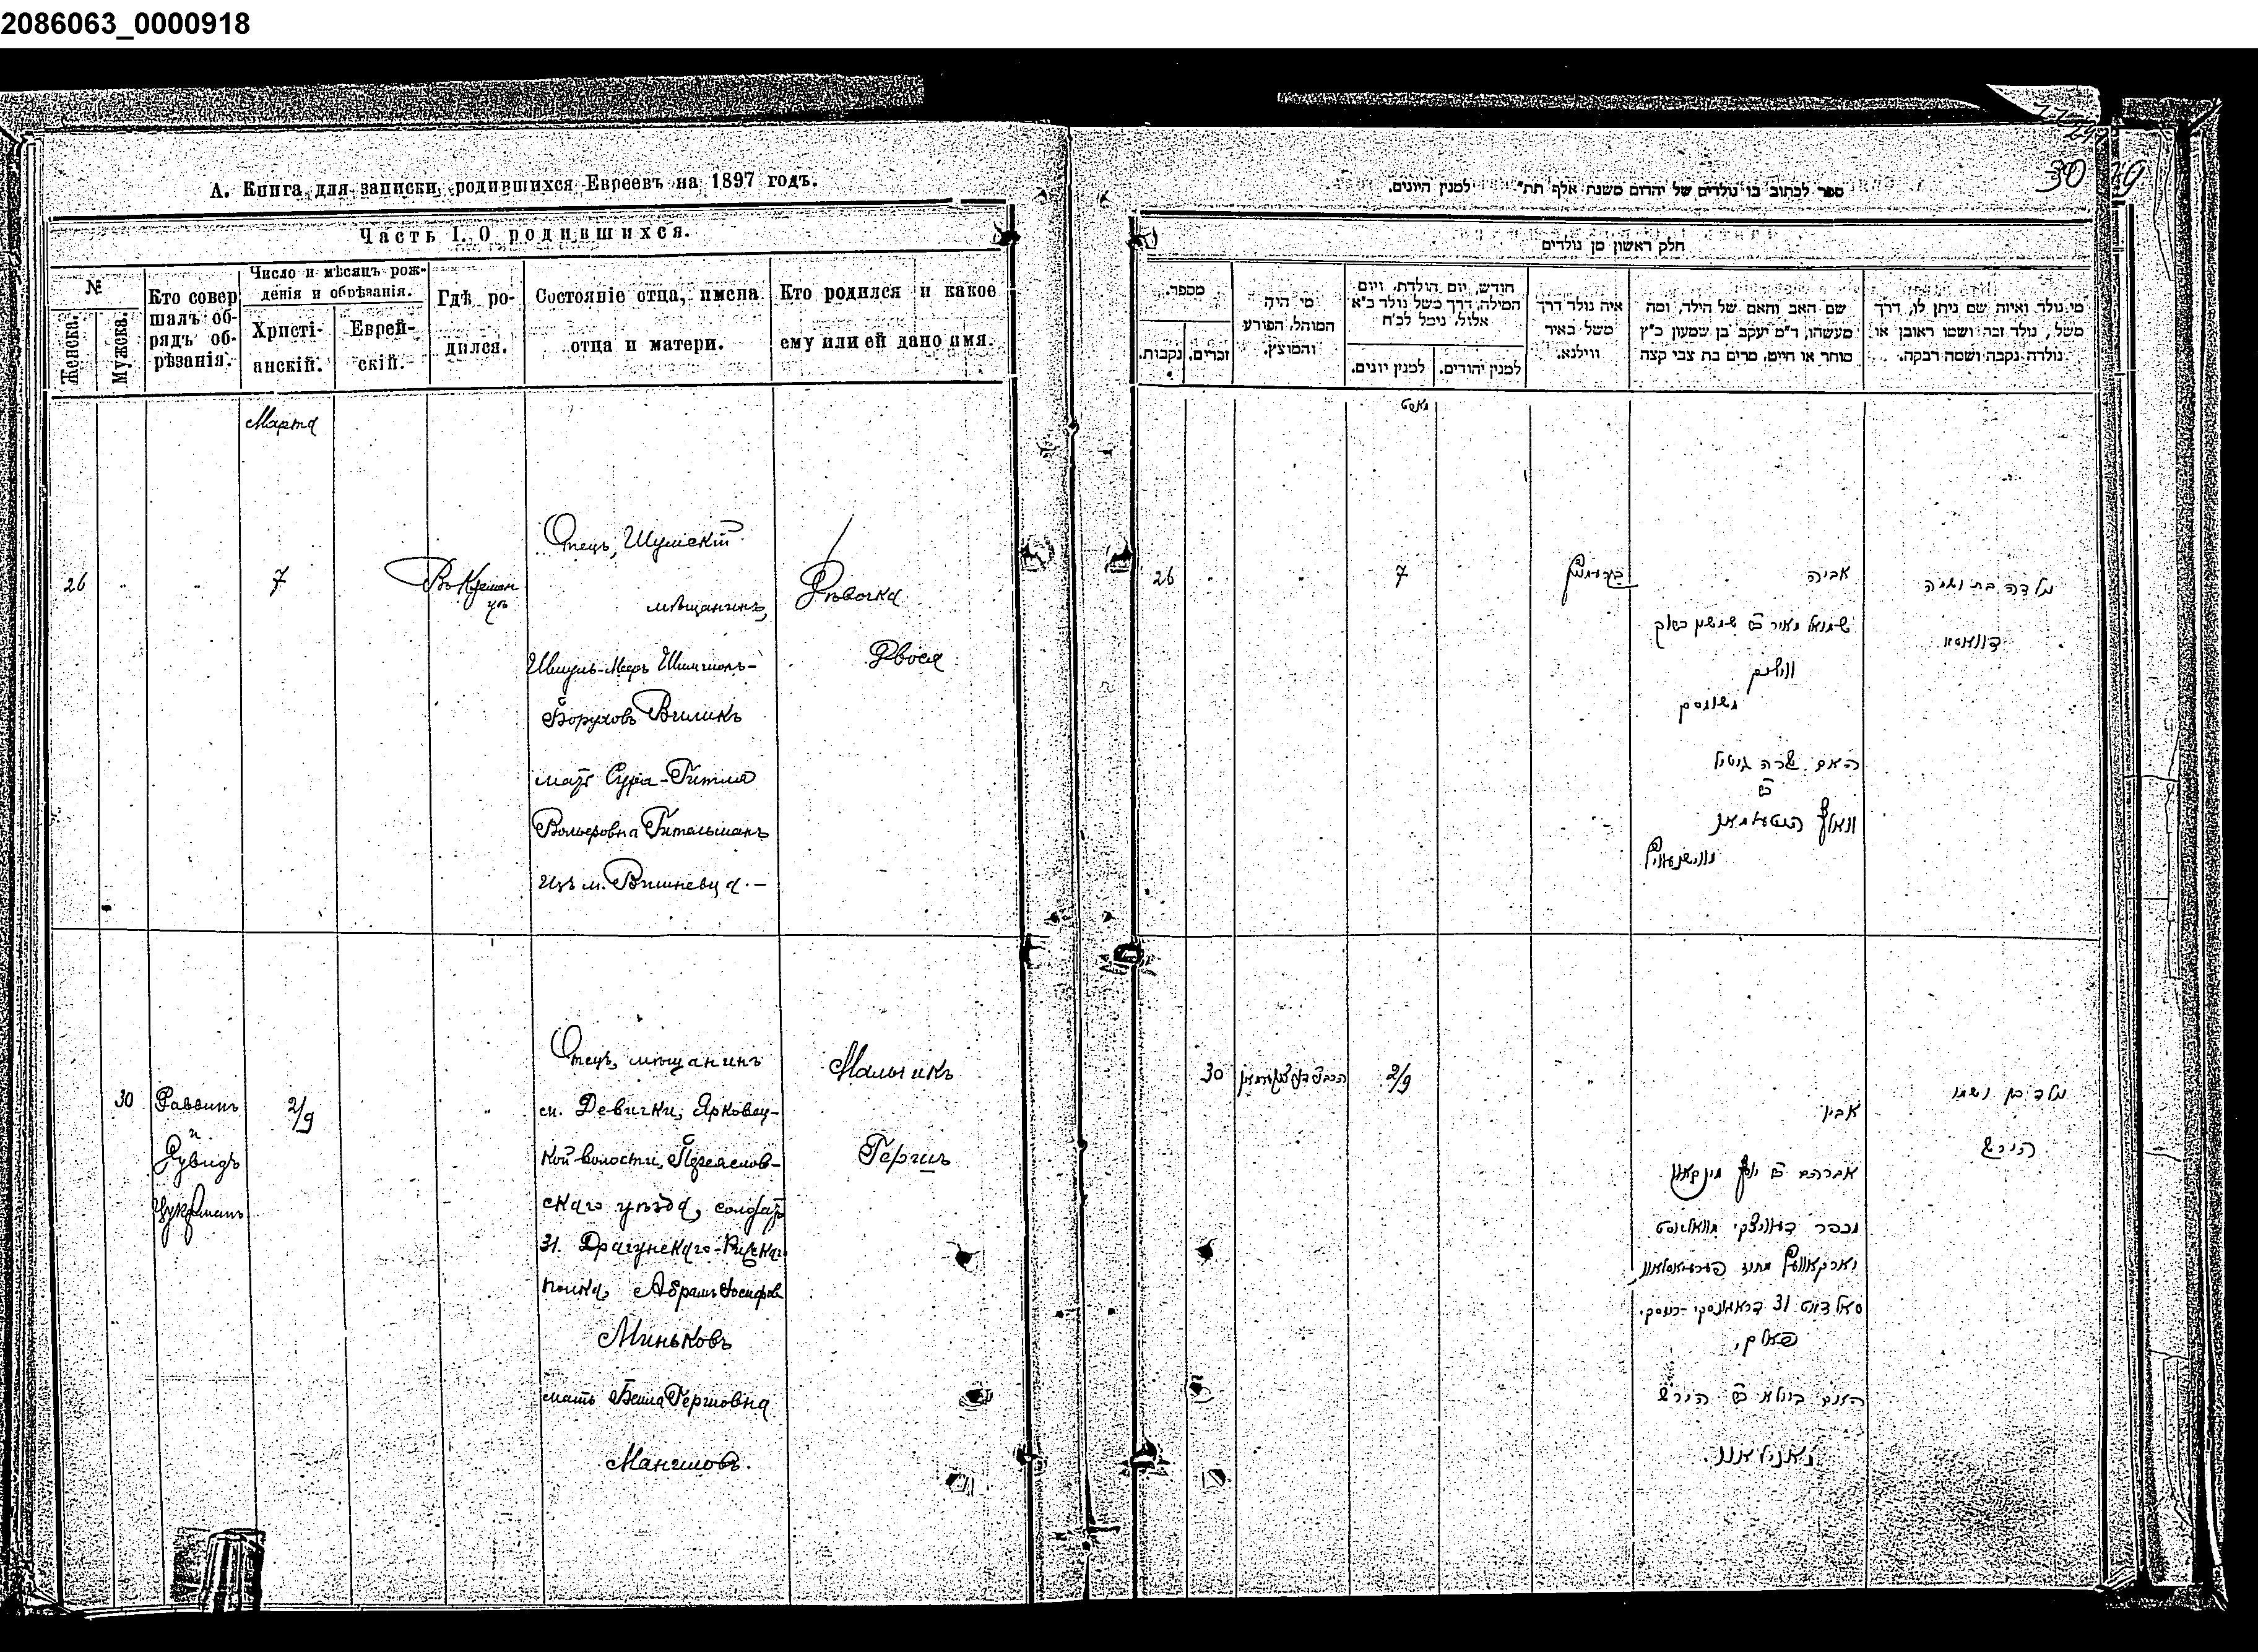 2086063_0000918
30
А. Книга для записки родившихся Евреевъ на 1897 годъ.
Часть I. О родившихся.
№
Женска.
Мужска.
Кто совер
шалъ об-
рядъ об-
рѣзанія.
Число и мѣсяцъ рож-
денія и обрѣзанія.
Христі-
анскій.
Еврей-
скій.
Гдѣ ро-
дился.
Состояніе отца, имена
отца и матери.
Кто родился и какое
ему или ей дано имя.
Марта
26
7
Въ Кремен
цѣ
Отецъ, Шумскій
мѣщанинъ,
Шмуль-Меръ Шимшонъ-
Боруховъ Виликъ
мать Сура-Гитля
Вольфовна Гительманъ
изъ м. Вишневца.-
Дѣвочка
Двося
30
Раввинъ
и
Дувидъ
Цукерманъ
2/9
Отецъ, мѣщанинъ
с. Девички, Ярковец-
кой волости, Переяслов-
скаго уѣзда, солдатъ
31. Драгунскаго-Рижскаго
полка, Абрамъ Іосифов
Миньковъ
мать Бейла Гершовна
Мальчикъ
Гершъ
ספר לכתוב בו נולדים של יהדום משנת אלף תת"      למנין היונים.
חלק ראשון מן נולדים
מספר.
נקבות.
זכרים.
מי היה
המוהל, הפורע
והמוצץ.
חודש, יום הולדת, ויום
המילה, דרך משל נולד ב"א
אלול, נימל לכ"ח
למנין יונים.
למנין יהודים.
איה נולד דרך
משל באיר
ווילנא.
שם האב והאם של הילד, ומה
מעשהו, ד"מ יעקב בן שמעון כ"ץ
סוחר או חייט, מרים בת צבי קצה
מי נולד ואיזה שם ניתן לו, דרך
משל, נולד זכר ושמו ראובן או
נולדה נקבה ושמה רבקה.
מארט
26
7
אביה
שמואל מאיר ב״ר שמשון ברוך
וויליק
משומסק
האם שרה גיטיל
ב״ר
וואלף
נולדה בת ושמה
דוואסא
30
2/9
אביו
נולד בן ושמו
הירש
האם ביילא ב״ר הירש